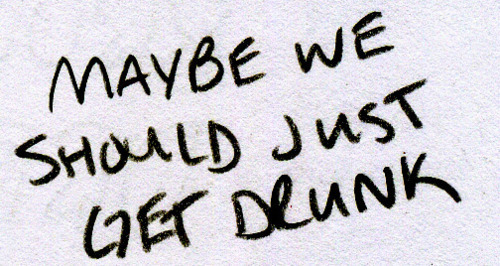 MAYBE WE
SHOULD JUST
GET DRUNK